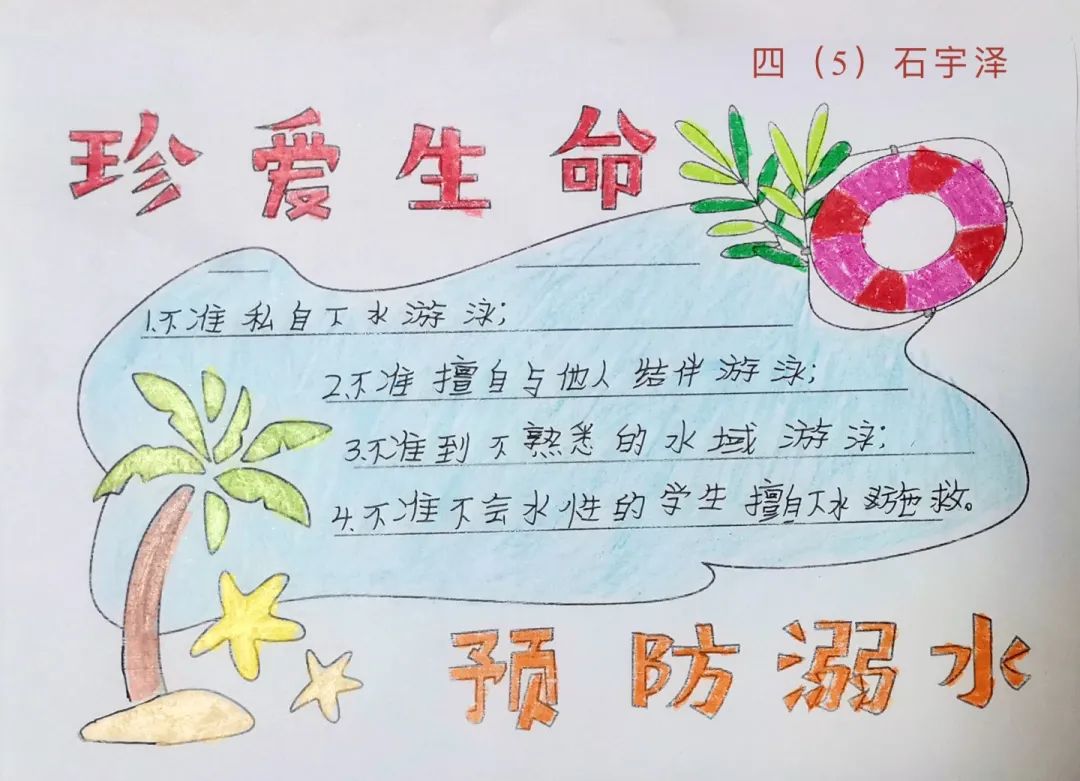 四（5）石宇泽
珍爱生命
1.不准私自下水游泳;
2.不准擅自与他人结伴游泳;
3.不准到不熟悉的水域游泳;
4.不准不会水性的学生擅自下水实施救。
预防溺水